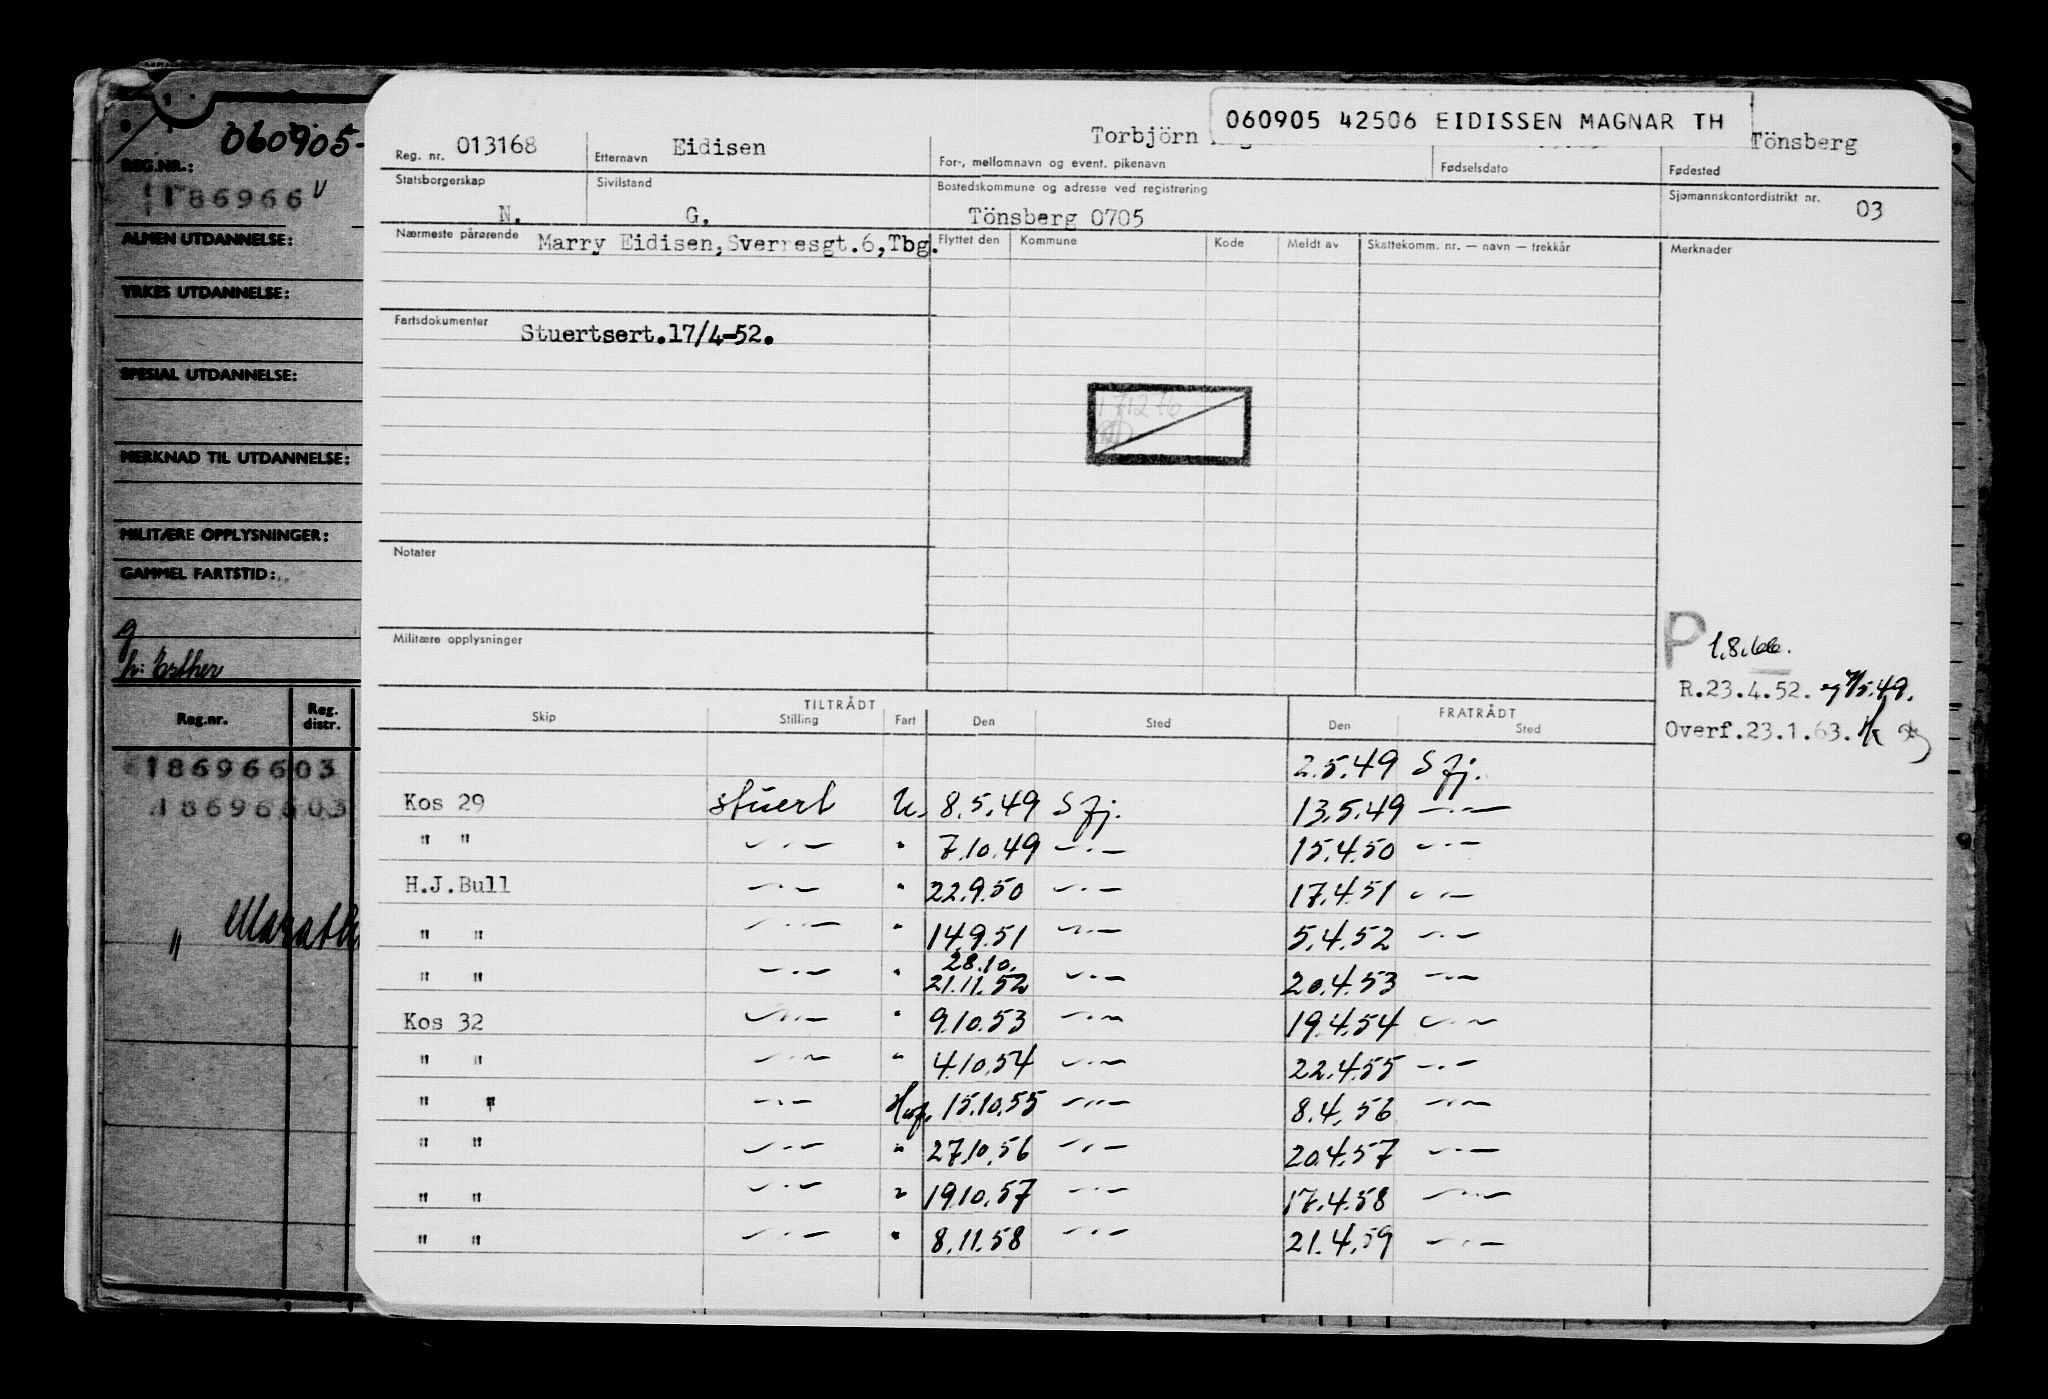 060905-
REG.NR.:
186966 v
ALMEN UTDANNELSE:
YRKES UTDANNELSE:
SPESIAL UTDANNELSE:
MERKNAD TIL UTDANNELSE:
MILITÆRE OPPLYSNINGER:
GAMMEL FARTSTID:
g
h: Esther
Reg.nr. Reg. distr.
186966 03
186966 03
"
060905 42506 EIDISSEN MAGNAR TH
Reg. nr. 013168 Etternavn Eidisen Torbjörn Tönsberg
For-, mellomnavn og event. pikenavn Fødselsdato Fødested
Statsborgerskap Sivilstand Bostedskommune og adresse ved registrering Sjømannskontordistrikt nr. 03
N. G. Tönsberg 0705
Nærmeste pårørende Marry Eidisen, Sverresgt.6, Tbg. Flyttet den Kommune Kode Meldt av Skattekomm. nr. — navn — trekkår Merknader
Fartsdokumenter Stuertsert.17/4-52.
171276
Notater
Militære opplysninger
P 1.8.66.
R.23.4.52. og 7/5.49.
Overf.23.1.63.
TILTRÅDT FRATRÅDT
Skip Stilling Fart Den Sted Den Sted
2.5.49 S Fj.
Kos 29 stuert U. 8.5.49 S Fj. 13.5.49 —·—
" " —·— " 7.10.49 —·— 15.4.50 —·—
H.J.Bull —·— " 22.9.50 —·— 17.4.51 —·—
" " —·— " 14.9.51 —·— 5.4.52 —·—
28.10.
" " —·— " 21.11.52 —·— 20.4.53 —·—
Kos 32 —·— " 9.10.53 —·— 19.4.54 —·—
" " —·— " 4.10.54 —·— 22.4.55 —·—
" " —·— Hvf. 15.10.55 —·— 8.4.56 —·—
" " —·— " 27.10.56 —·— 20.4.57 —·—
" " —·— " 19.10.57 —·— 17.4.58 —·—
" " —·— " 8.11.58 —·— 21.4.59 —·—